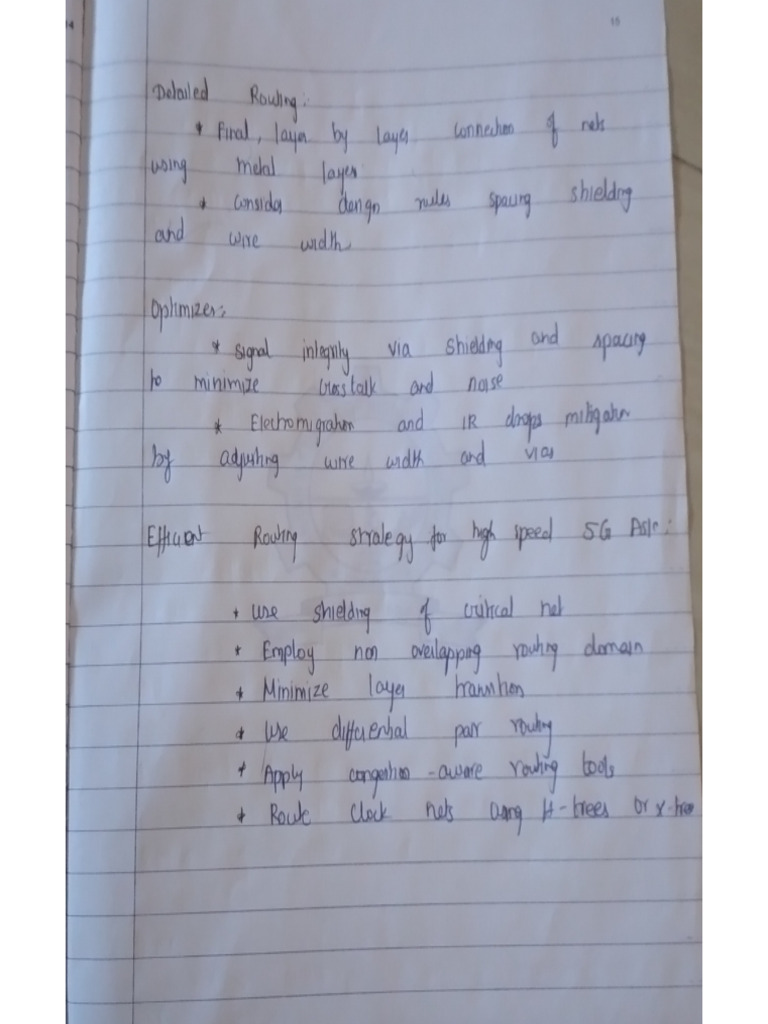 14
15
Detailed Routing:
* Final, layer by layer connection of nets
using metal layer
* Consider design rules spacing shielding
and wire width
Optimizer:
* Signal integrity via shielding and spacing
to minimize crosstalk and noise
* Electromigration and IR drops mitigation
by adjusting wire width and vias
Efficient Routing strategy for high speed 5G Asic:
* Use shielding of critical net
* Employ non overlapping routing domain
* Minimize layer transition
* Use differential pair routing
* Apply congestion-aware routing tools
* Route Clock nets using H-trees or X-tree